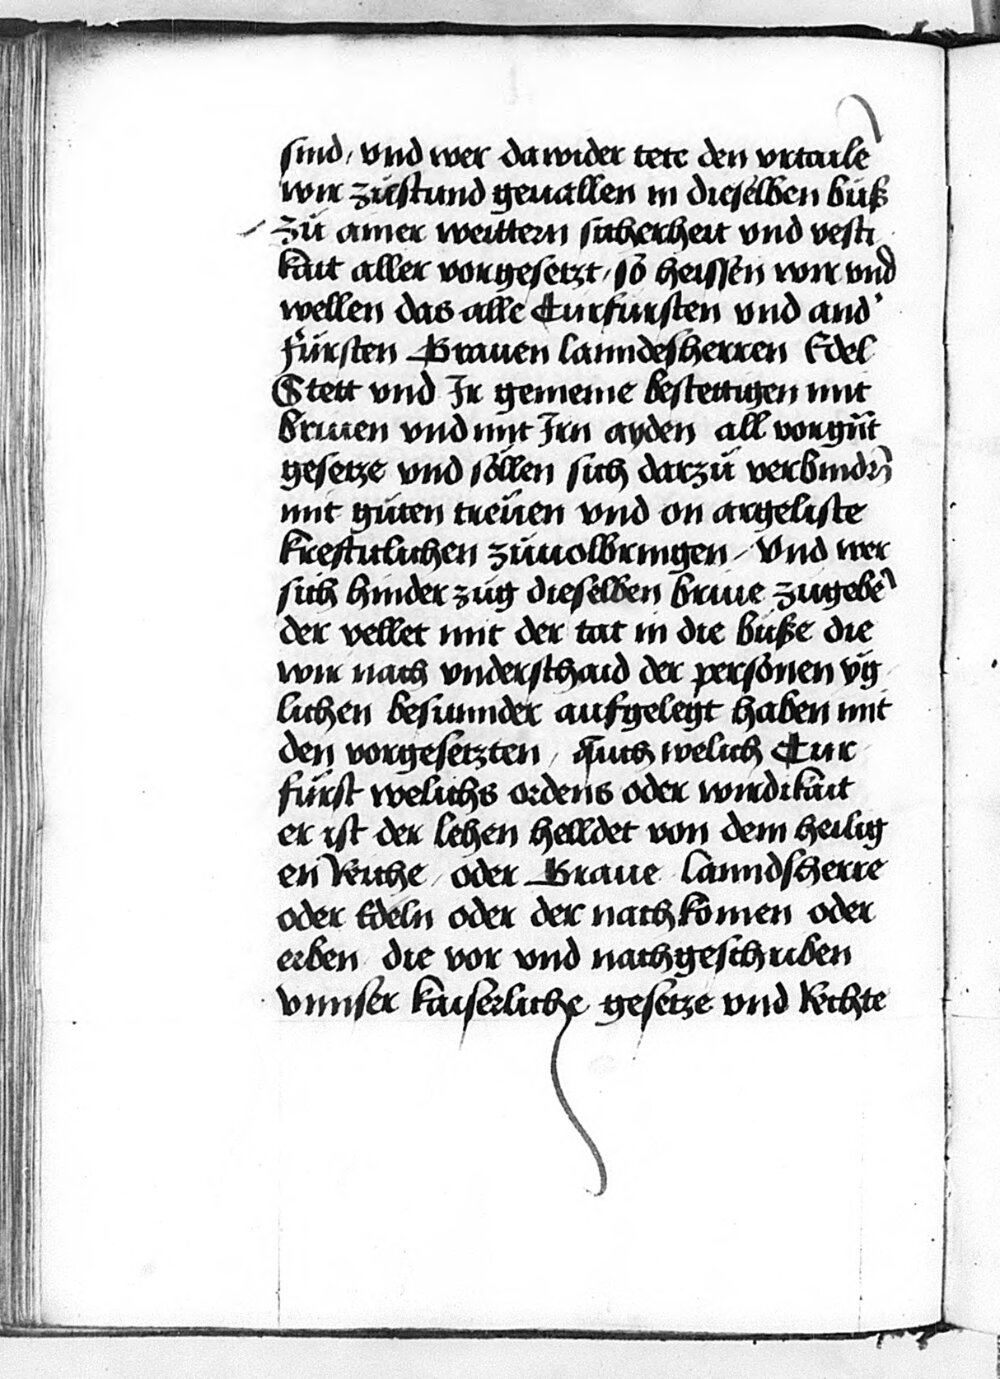 sind / vnd wer dawider tete den vrtaile
wir zůstund geuallen in dieselben bůß
zů ainer weittern sicherheit vnd vesti
kait aller vorgesetzt / so heissen wir vnd
wellen das alle Curfursten vnd and'
fürsten Grauen lanndesherren Edel
Stett vnd Ir gemeine bestettigen mit
briuen vnd mit Irn ayden all vorgůt
gesetze vnd söllen sich darzů verbindn̄
mit gůten treüen vnd on argeliste
krefticlichen zůuolbringen / Vnd wer
sich hinder zug dieselben briue zugebē
der vellet mit der tat in die bůße die
wir nach vnderschaid der personen yg
lichen besunnder aufgelegt haben mit
den vorgesetzten / Auch welich Cur
fürst welichs ordens oder wirdikait
er ist der lehen helldet von dem heilig
en Reiche / oder Graue lanndsherre
oder Edeln oder der nachkomen oder
erben die vor vnd nachgeschriben
vnnser kaiserliche gesetze vnd Rechte